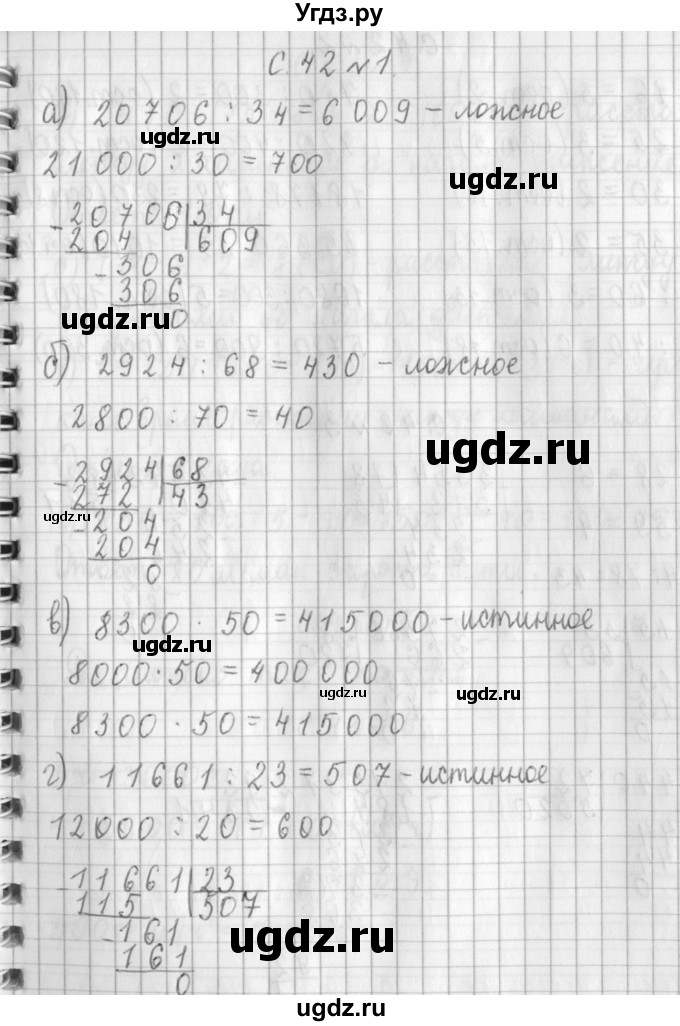 Угдз.ру
С. 42 №1.
а) 20706 : 34 = 6 009 – ложное
ugdz.ru
21000 : 30 = 700
ugdz.ru
- 20706 34
204 609
- 306
306
ugdz.ru
0
б) 2924 : 68 = 430 – ложное
2800 : 70 = 40
ugdz.ru
- 2924 68
272 43
ugdz.ru
- 204
204
0
в) 8300 · 50 = 415000 – истинное
ugdz.ru
8000 · 50 = 400 000
ugdz.ru
ugdz.ru
8300 · 50 = 415000
г) 11661 : 23 = 507 – истинное
12000 : 20 = 600
- 11661 23
115 507
- 161
ugdz.ru
161
0
ugdz.ru